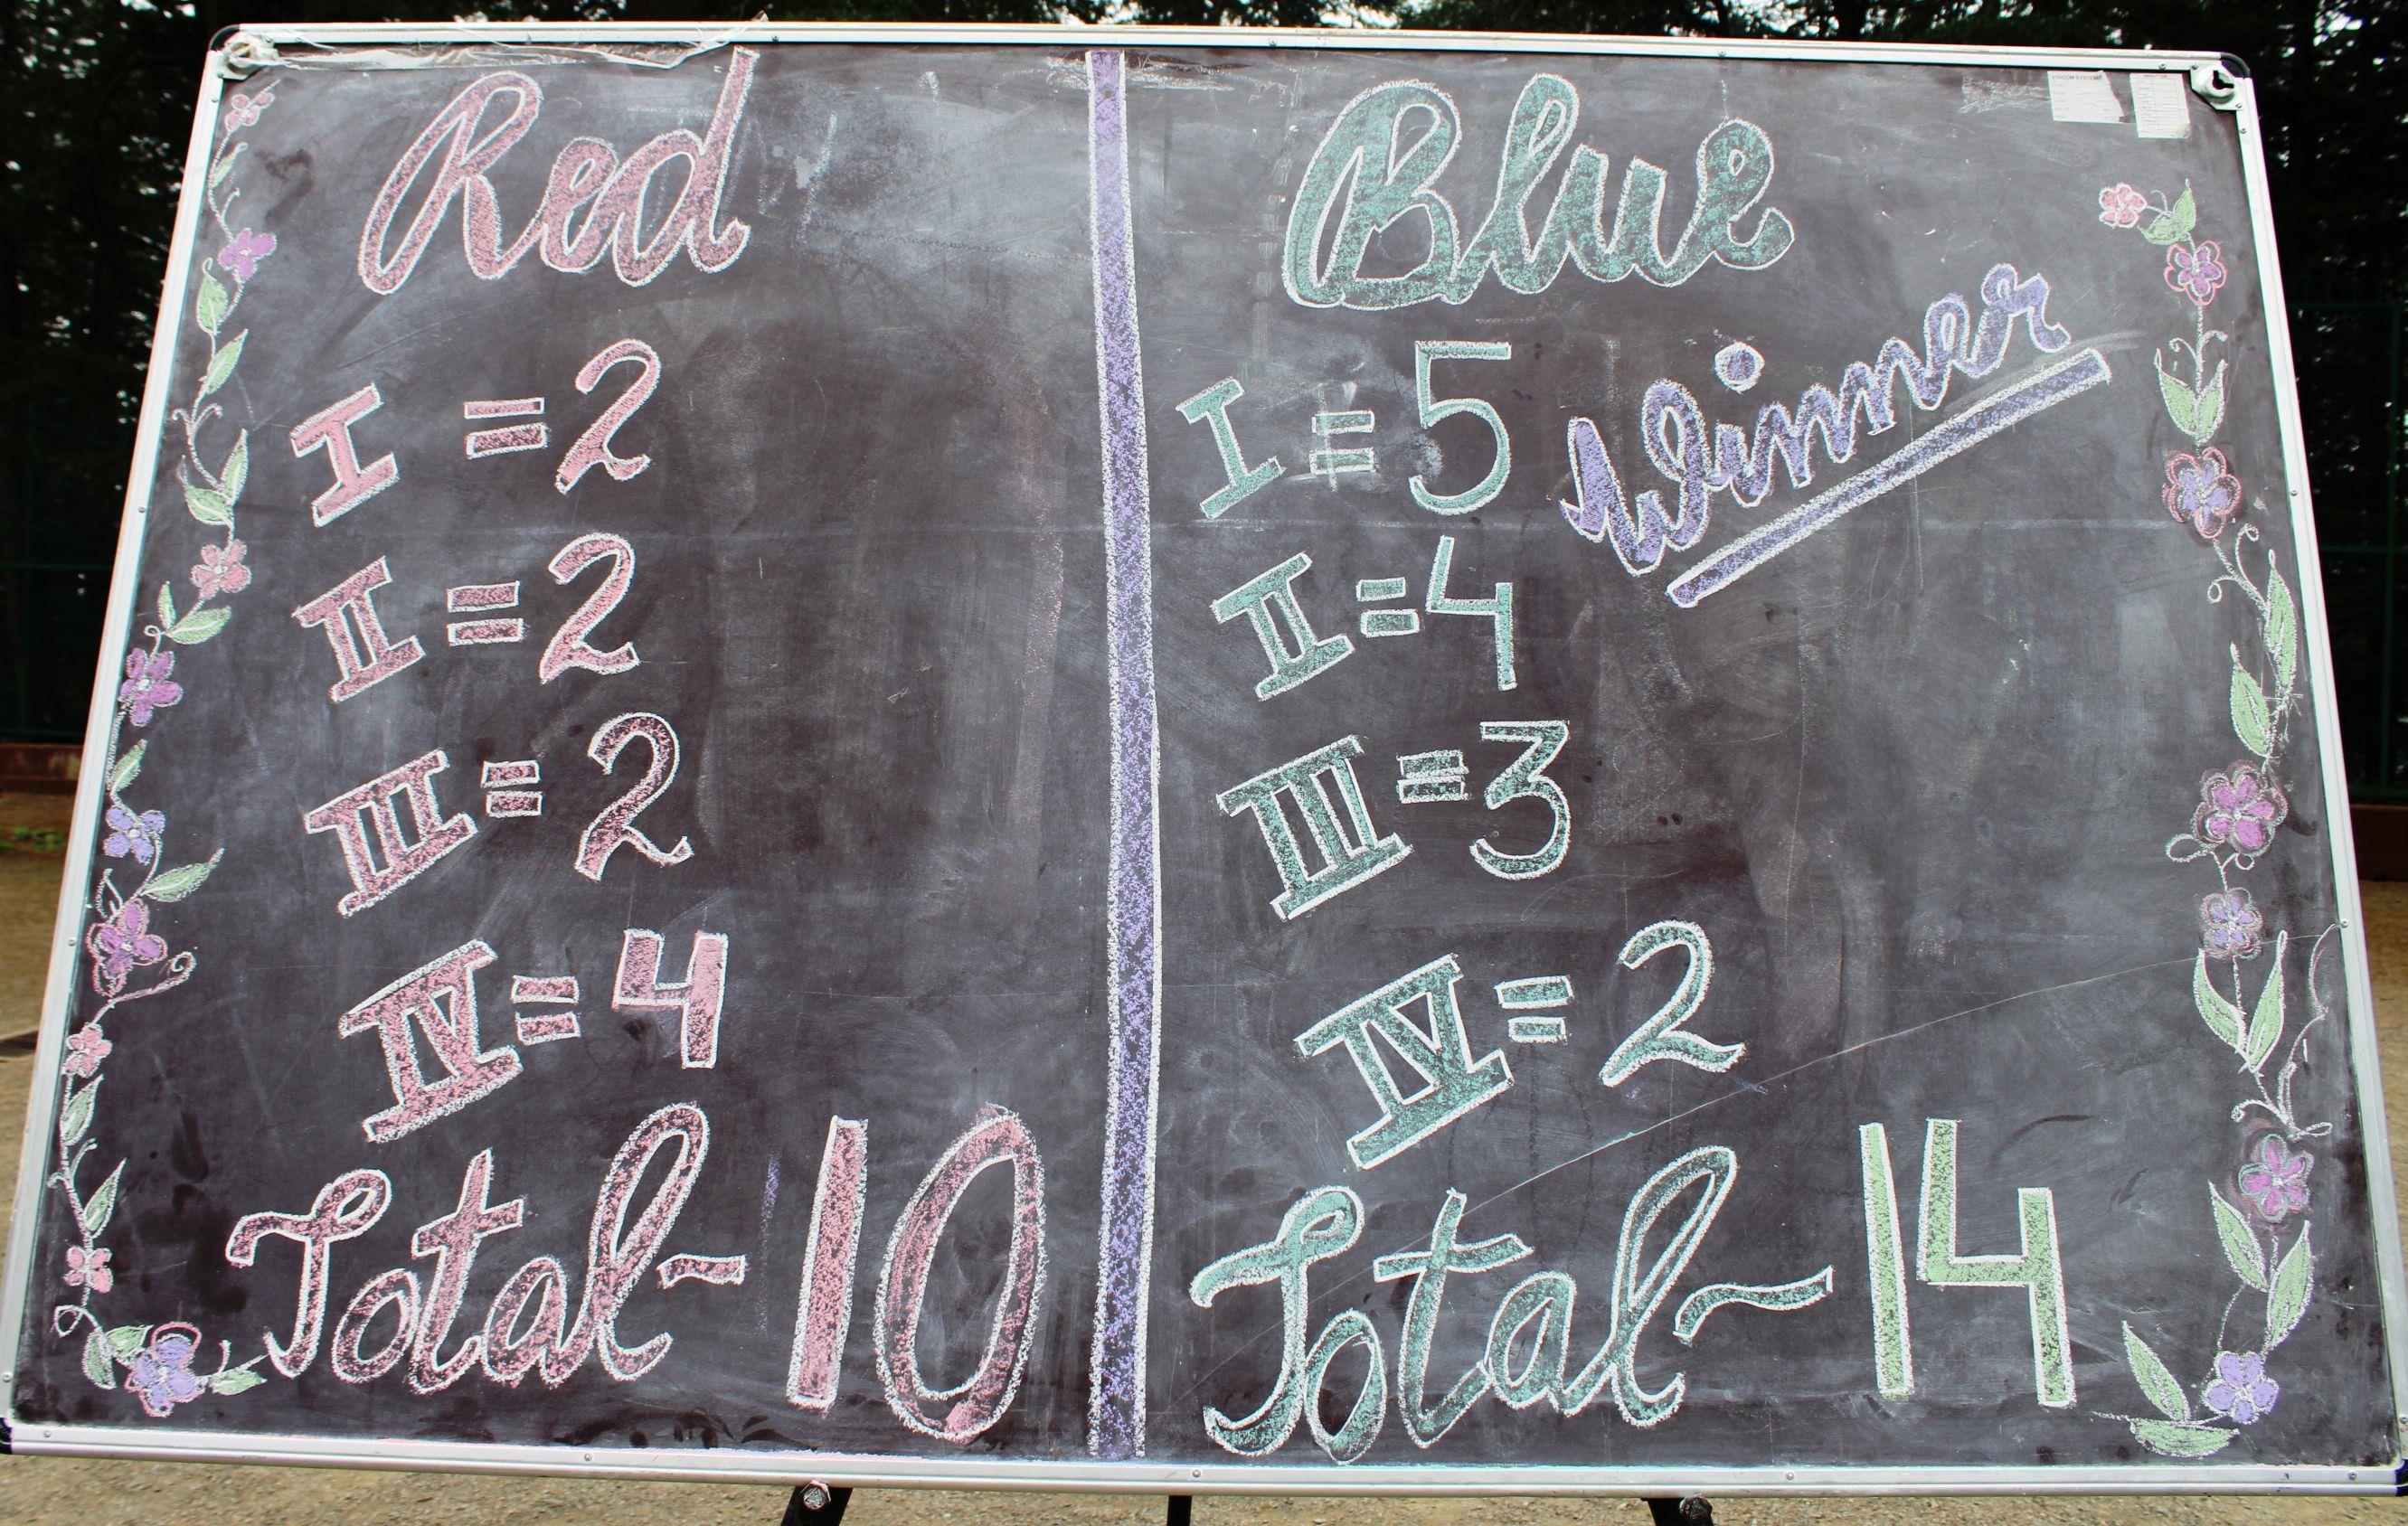 Red
I = 2
II = 2
III = 2
IV = 4
Total - 10
Blue
Winner
I = 5
II = 4
III = 3
IV = 2
Total - 14
VISICOM SYSTEMS